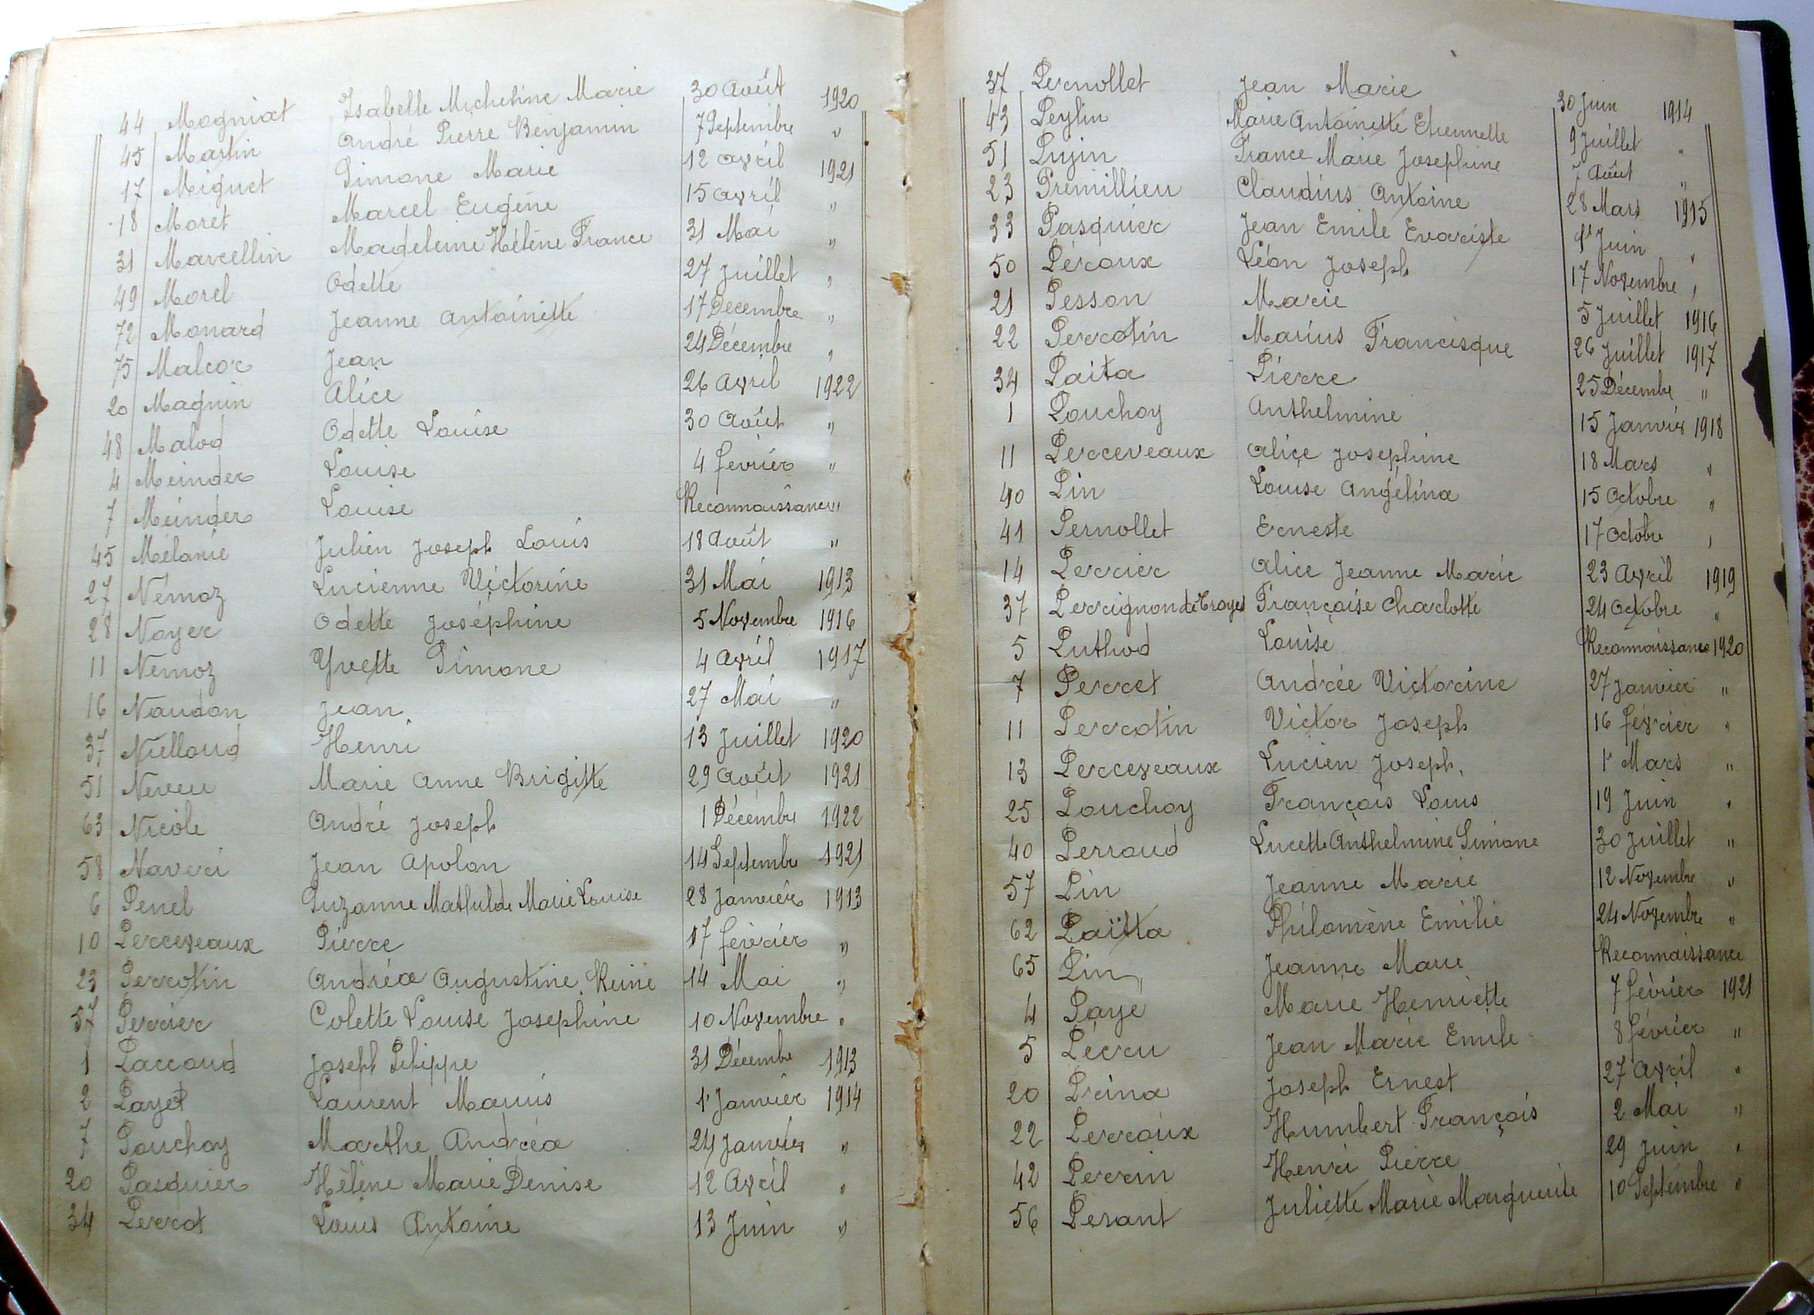 44 Magniat Isabelle Micheline Marie 30 Août 1920
45 Martin André Pierre Benjamin 7 Septembre "
17 Miguet Simone Marie 12 Avril 1921
18 Moret Marcel Eugène 15 Avril "
31 Marcellin Madeleine Hélène France 31 Mai "
49 Morel Odette 27 Juillet "
72 Monard Jeanne Antoinette 17 Décembre "
75 Malcor Jean 24 Décembre "
20 Magnin Alice 26 Avril 1922
48 Malod Odette Louise 30 Août "
4 Meinder Louise 4 février "
7 Meinder Louise Reconnaissance "
45 Mélanie Julien Joseph Louis 18 Août "
27 Némoz Lucienne Victorine 31 Mai 1913
28 Noyer Odette Joséphine 5 Novembre 1916
11 Nemoz Yvette Simone 4 Avril 1917
16 Naudon Jean 27 Mai "
37 Nielloud Henri 13 Juillet 1920
51 Neveu Marie Anne Brigitte 29 Août 1921
63 Nicole André Joseph 1 Décembre 1922
58 Naveri Jean Apolon 14 Septembre 1921
6 Penel Suzanne Mathilde Marie Louise 28 Janvier 1913
10 Perceveaux Pierre 17 février "
23 Perrotin Andréa Augustine Reine 14 Mai "
57 Perrier Colette Louise Joséphine 10 Novembre "
1 Paccoud Joseph Philippe 31 Décembre 1913
2 Payet Laurent Marius 1r Janvier 1914
7 Pouchoy Marthe Andréa 24 Janvier "
20 Pasquier Hélène Marie Denise 12 Avril "
34 Perrot Louis Antoine 13 Juin "
37 Pernollet Jean Marie 30 Juin 1914
43 Peylin Marie Antoinette Etiennette 9 Juillet "
51 Pujin France Marie Josephine 7 Août "
23 Premillieu Claudius Antoine 28 Mars 1915
33 Pasquier Jean Emile Evariste Juin "
50 Péroux Léon Joseph 17 Novembre "
21 Pesson Marie 5 Juillet 1916
22 Perrotin Marius Francisque 26 Juillet 1917
34 Paita Pierre 25 Décembre "
1 Pouchoy Anthelmine 15 Janvier 1918
11 Perceveaux Alice Josephine 18 Mars "
40 Pin Louise Angélina 15 Octobre "
41 Pernollet Erneste 17 Octobre "
14 Perrier Alice Jeanne Marie 23 Avril 1919
37 Perrignon de Troyes Françoise Charlotte 24 Octobre "
5 Puthod Louise Reconnaissance 1920
7 Perret Andrée Victorine 27 Janvier "
11 Perrotin Victor Joseph 16 février "
13 Perceveaux Lucien Joseph 1r Mars "
25 Pouchoy François Louis 19 Juin "
40 Perraud Lucette Anthelmine Simone 30 Juillet "
57 Pin Jeanne Marie 12 Novembre "
62 Païtta Philomène Emilie 24 Novembre "
65 Pin Jeanne Marie Reconnaissance
4 Paye Marie Henriette 7 février 1921
5 Pécru Jean Marie Emile 8 février "
20 Prina Joseph Ernest 27 Avril "
22 Perraux Humbert François 2 Mai "
42 Perrin Henri Pierre 29 Juin "
56 Perant Juliette Marie Marguerite 10 Septembre "